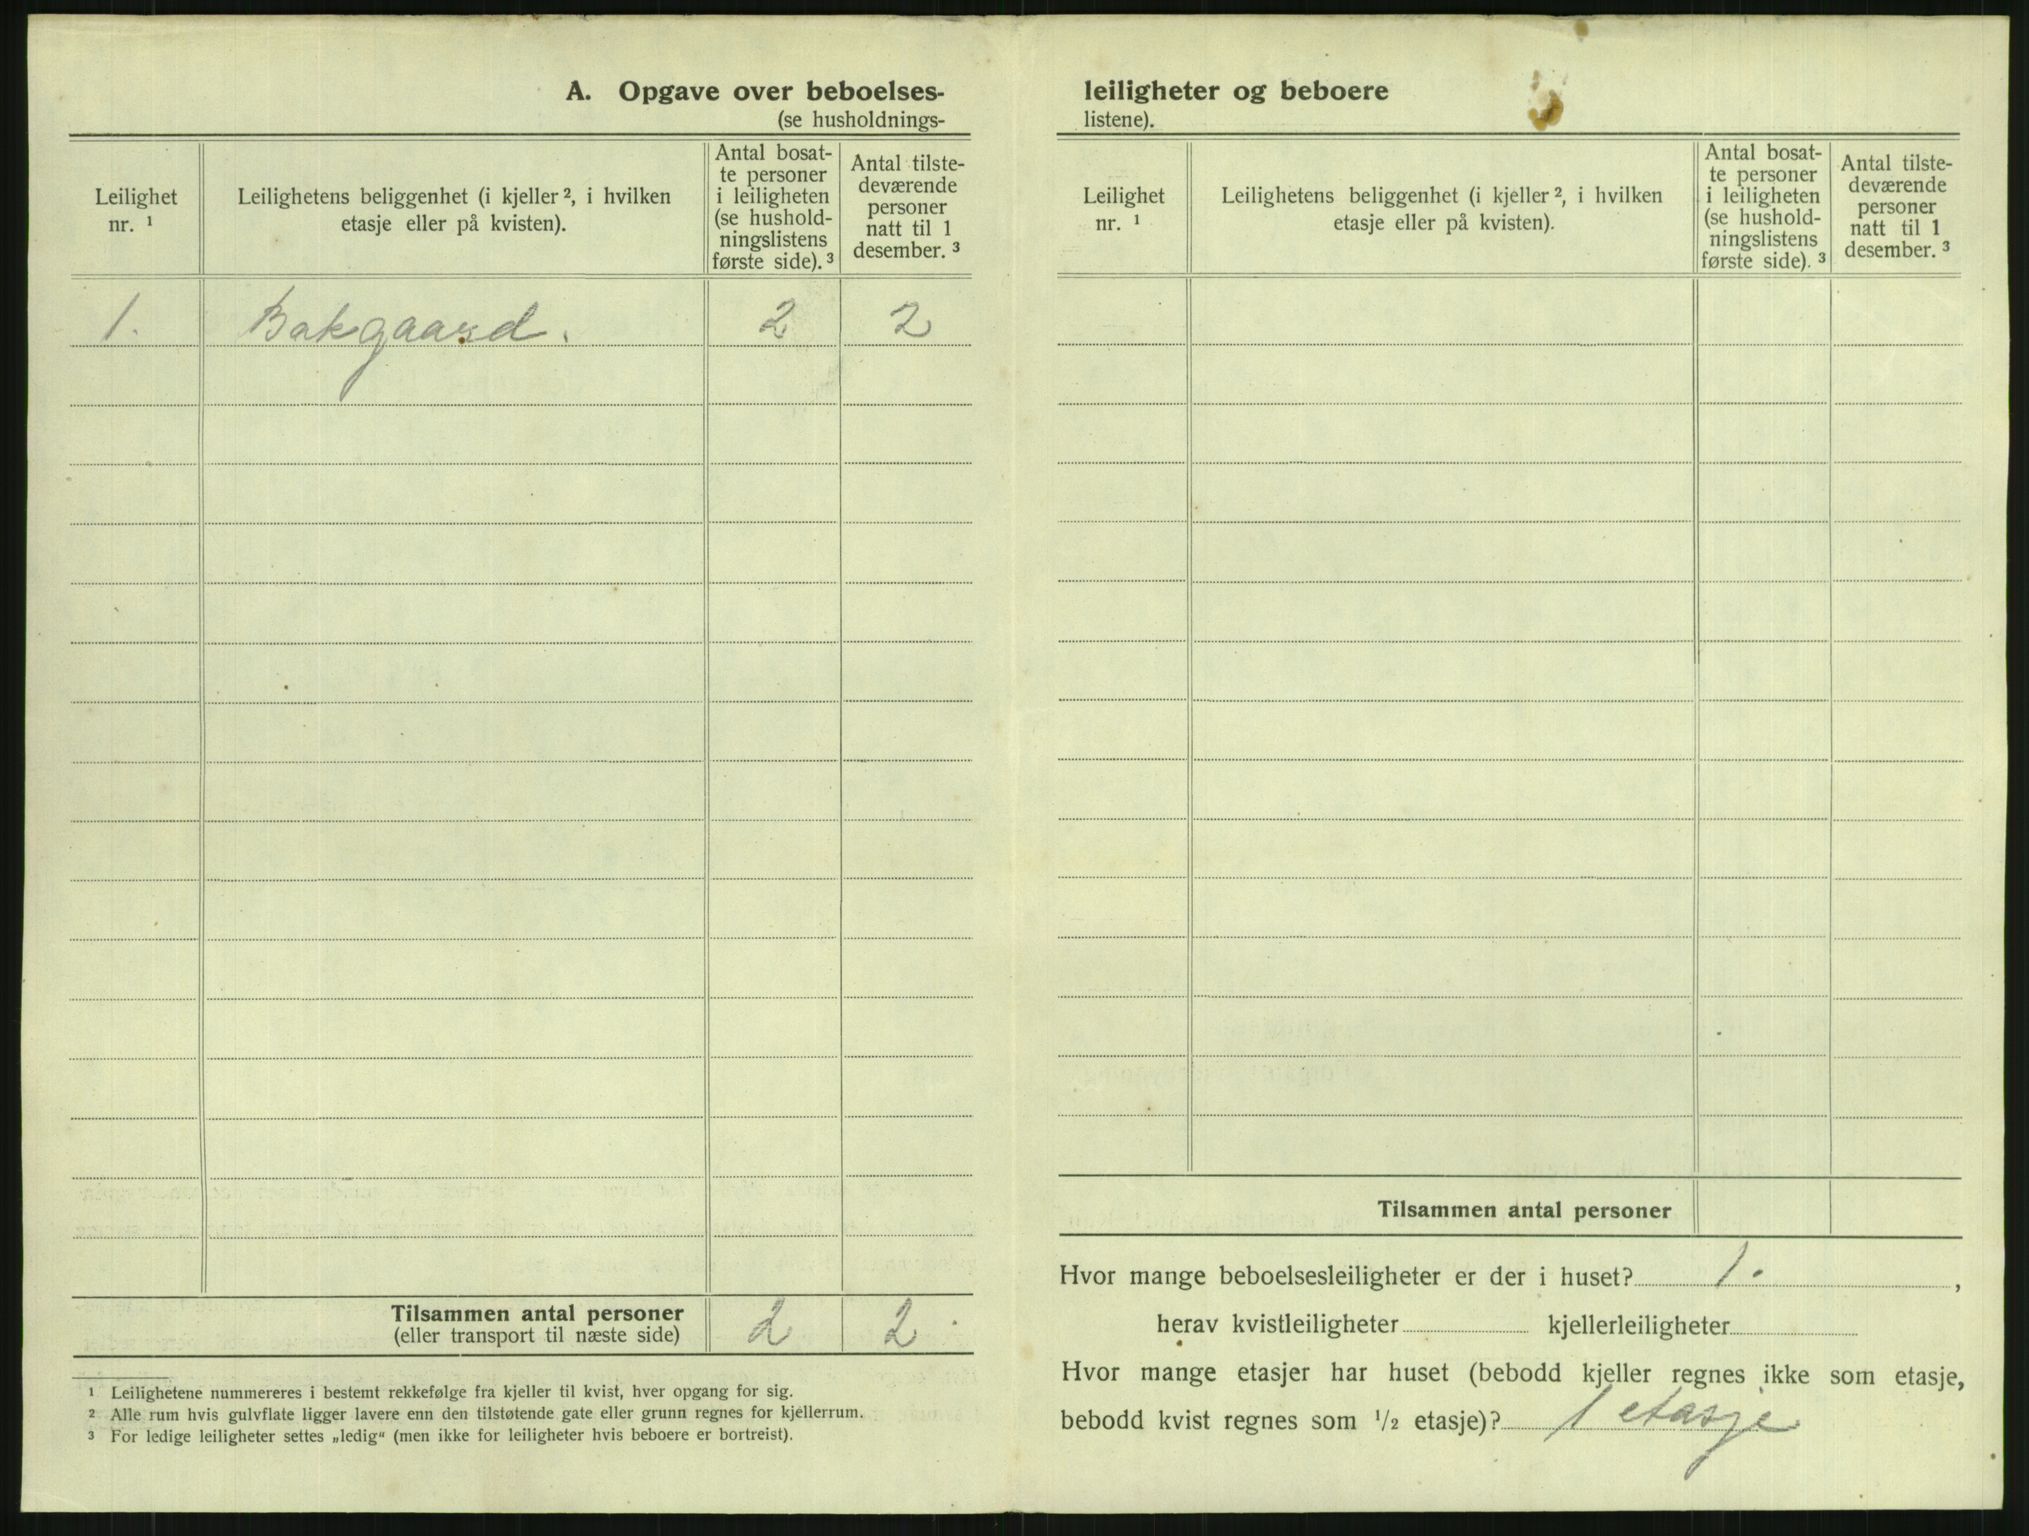 A. Opgave over beboelses-
(se husholdnings-
Leilighet
nr. ¹
Leilighetens beliggenhet (i kjeller ², i hvilken
etasje eller på kvisten).
Antal bosat-
te personer
i leiligheten
(se hushold-
ningslistens
første side). ³
Antal tilste-
deværende
personer
natt til 1
desember. ³
1. Bakgaard. 2 2
Tilsammen antal personer
(eller transport til næste side)
2 2
¹ Leilighetene nummereres i bestemt rekkefølge fra kjeller til kvist, hver opgang for sig.
² Alle rum hvis gulvflate ligger lavere enn den tilstøtende gate eller grunn regnes for kjellerrum.
³ For ledige leiligheter settes „ledig“ (men ikke for leiligheter hvis beboere er bortreist).
leiligheter og beboere
listene).
Leilighet
nr. ¹
Leilighetens beliggenhet (i kjeller ², i hvilken
etasje eller på kvisten).
Antal bosat-
te personer
i leiligheten
(se hushold-
ningslistens
første side). ³
Antal tilste-
deværende
personer
natt til 1
desember. ³
Tilsammen antal personer
Hvor mange beboelsesleiligheter er der i huset? 1. ,
herav kvistleiligheter kjellerleiligheter
Hvor mange etasjer har huset (bebodd kjeller regnes ikke som etasje,
bebodd kvist regnes som ½ etasje)? 1 etasje